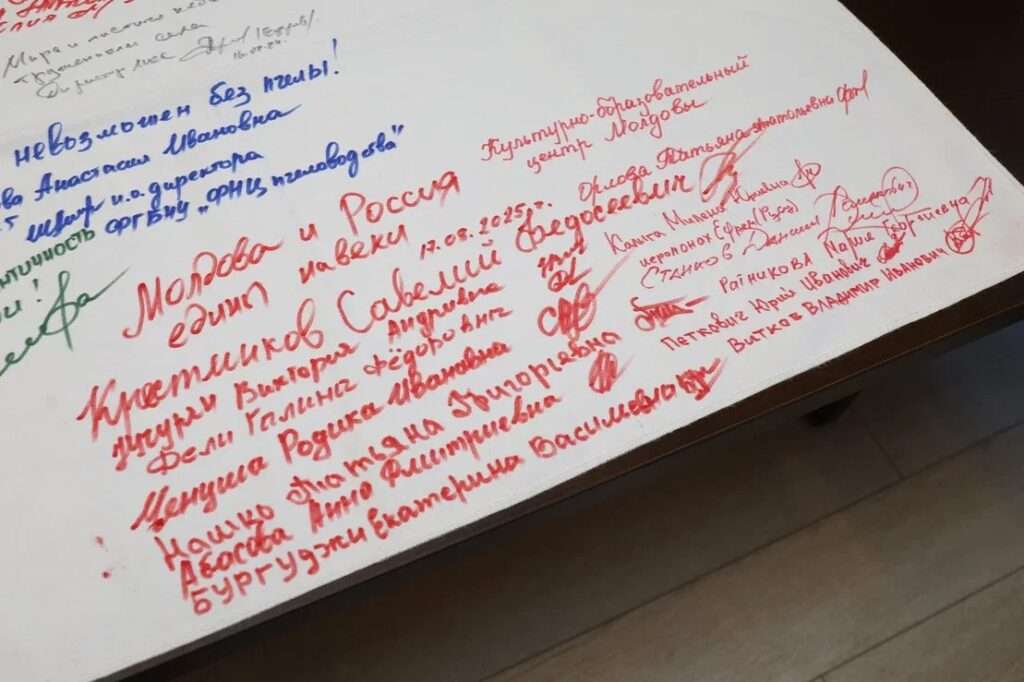 Мира и
невозможен без пчелы!
ва Анастасия Ивановна
и.о. директора
ФГБНУ „ФНЦ пчеловодства"
нтичность
Культурно-образовательный
центр Молдовы
Молдова и Россия
едины навеки
17.08.2025г.
Крестников Савелий Федосеевич
Виктория Андреевна
Фели Галина Фёдоровна
Менуша Родика Ивановна
Нашко Татьяна Григорьевна
Абасова Анна Дмитриевна
Бургуджи Екатерина Василевна
Орлова Татьяна Анатольевна
Калига Михаил
иеромонах Ефрем (Русу)
Станков
Ратникова Мария Георгиевна
Петкович Юрий Иванович
Витков Владимир Иванович